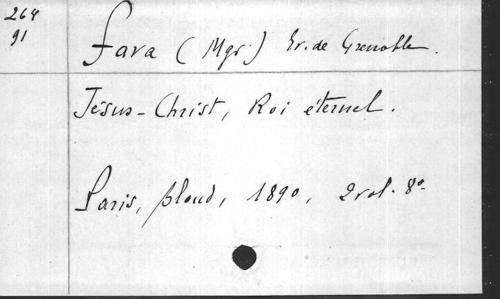 264
91
Fava (Mgr.) Ev. de Grenoble.
Jésus-Christ, Roi éternel.
Paris, plond, 1890, 2 vol. 8º.